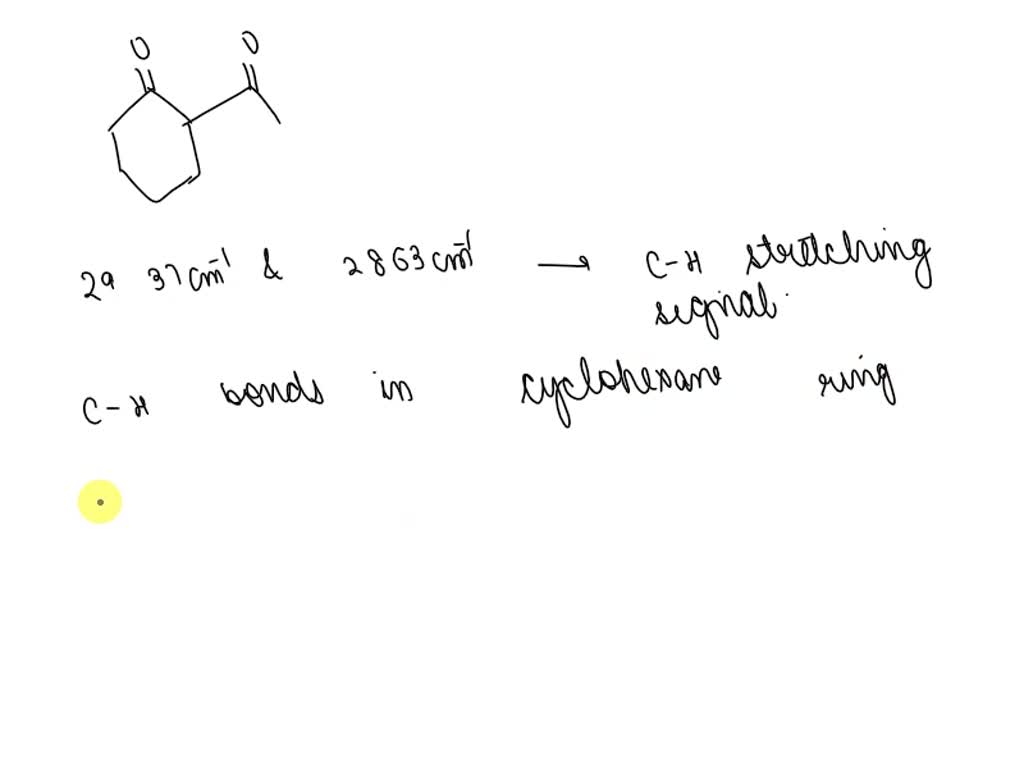 O O
2937 cm⁻¹ & 2863 cm⁻¹ → C-H stretching
signal.
C-H bonds in cyclohexane ring